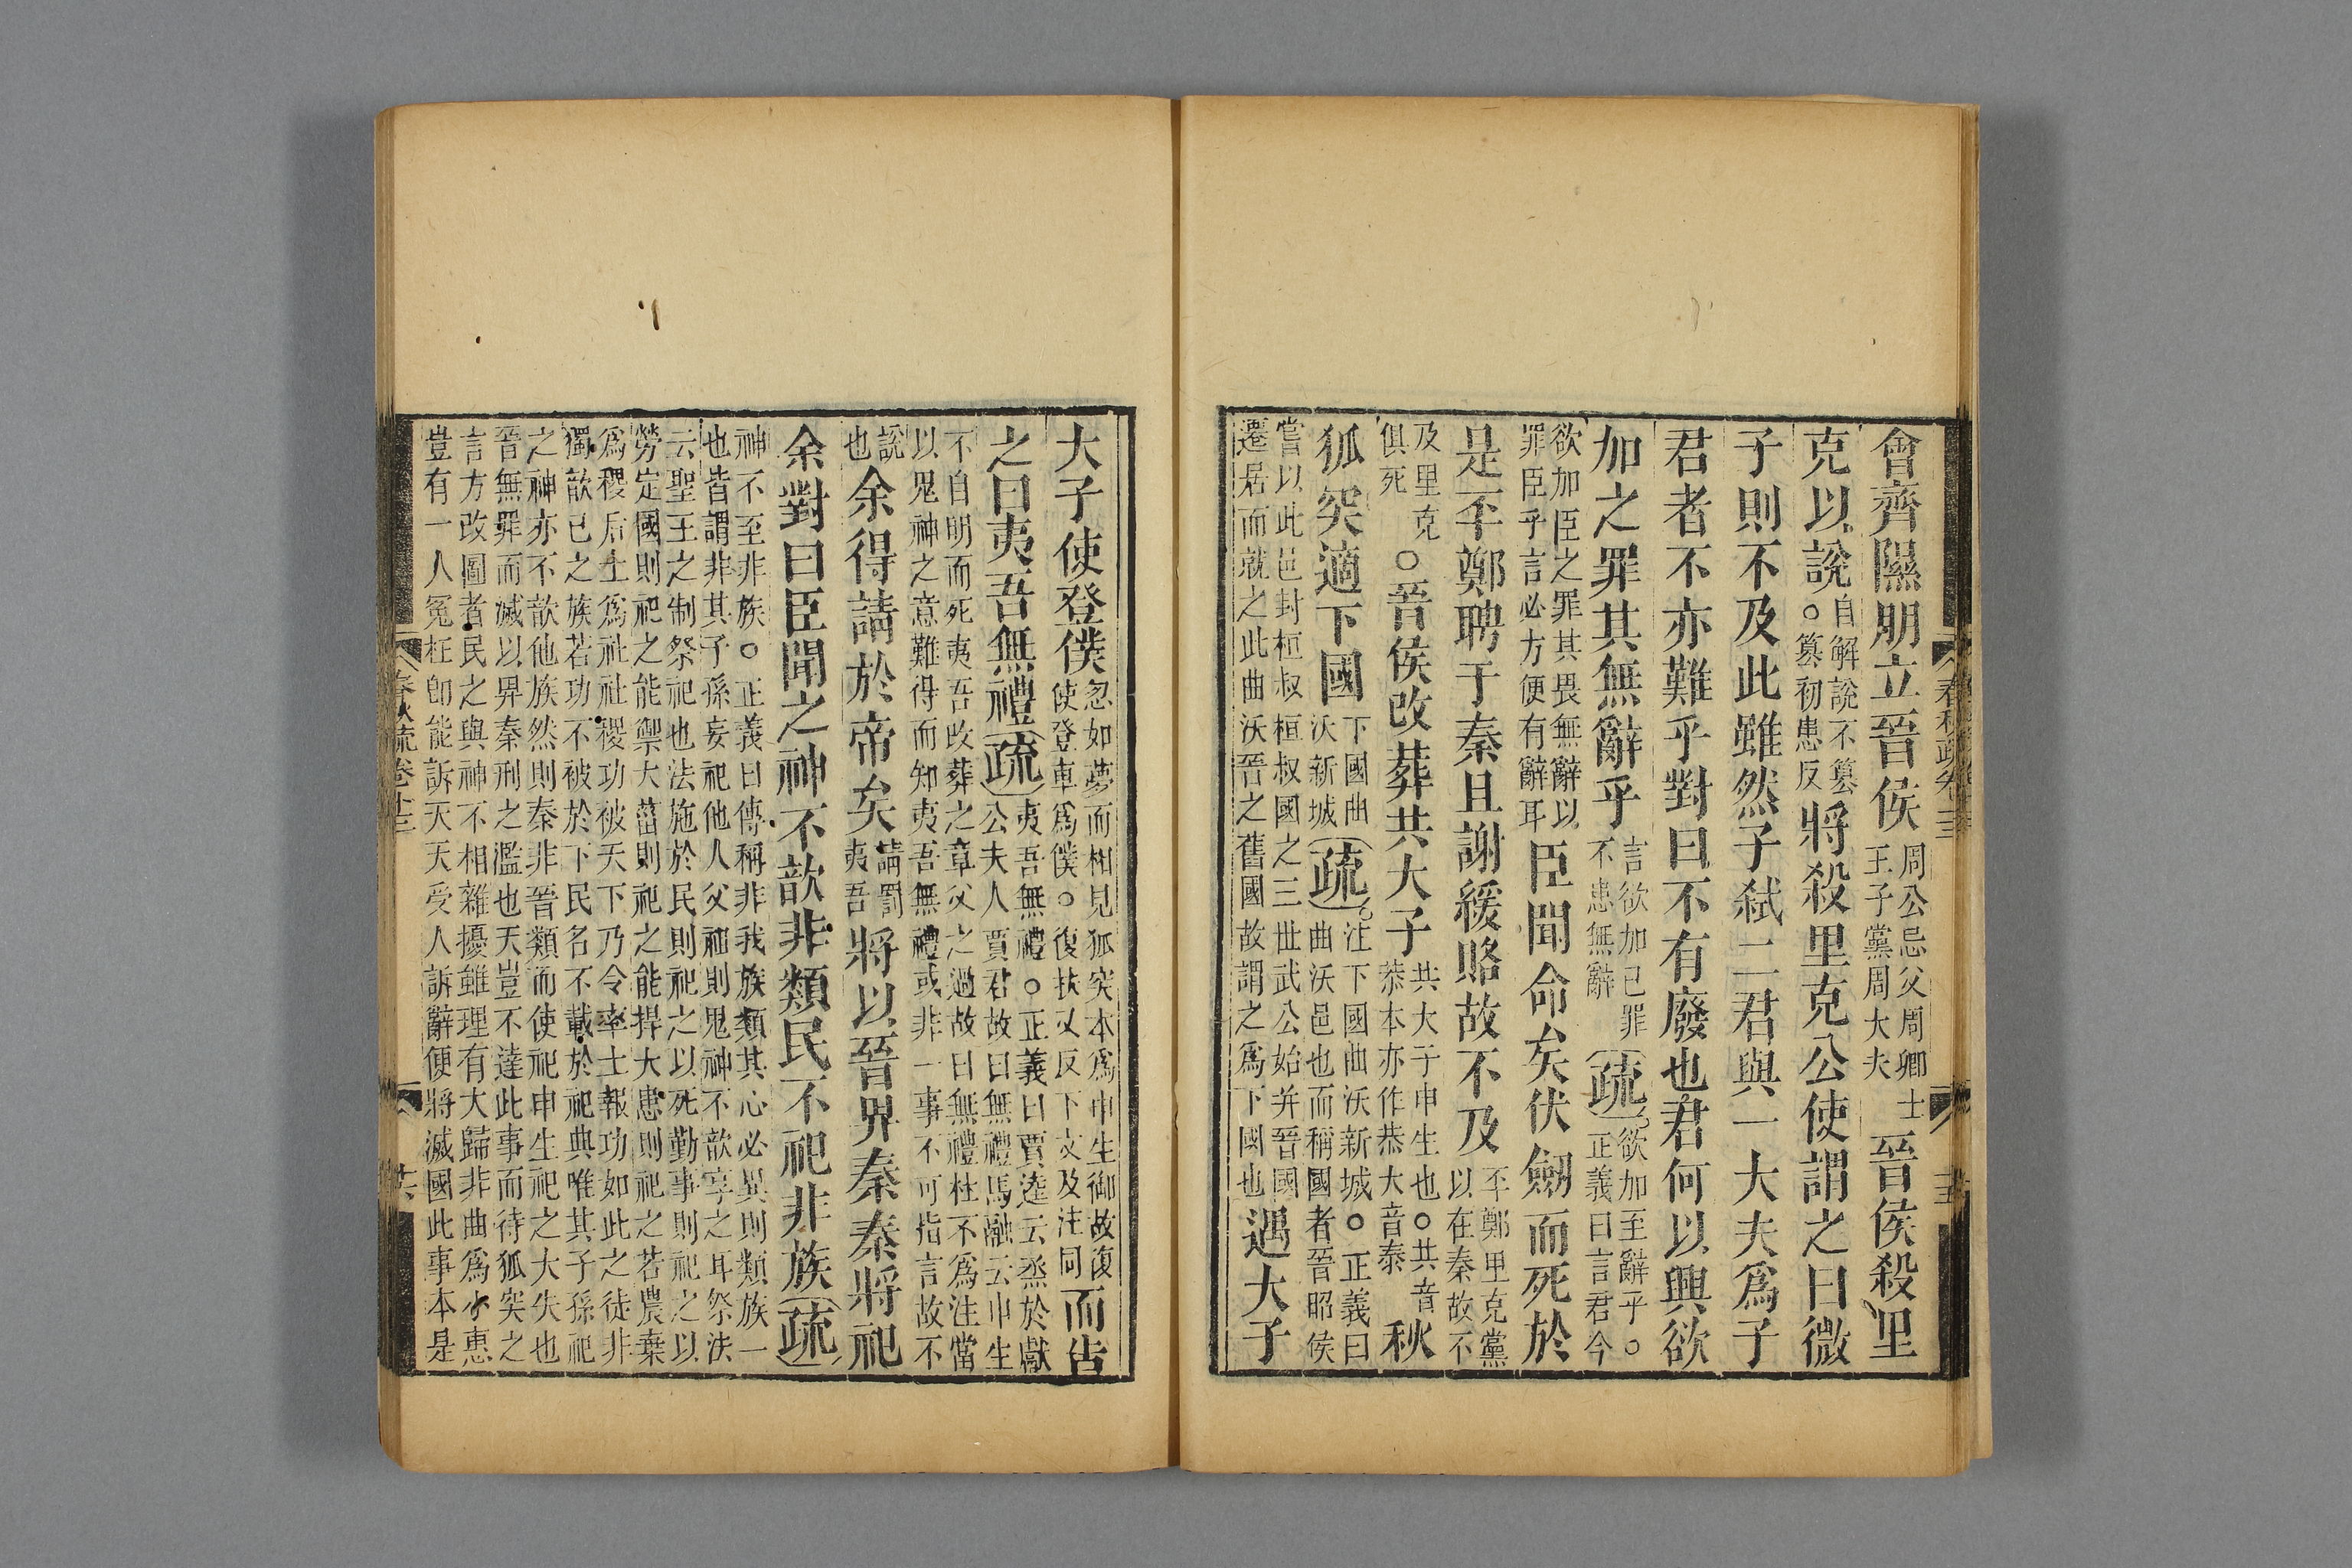 會齊隰朋立晉侯周公忌父周卿士王子黨周大夫晉侯殺里
克以說自解說不篡○篡初患反將殺里克公使謂之曰微
子則不及此雖然子弒二君與一大夫爲子
君者不亦難乎對曰不有廢也君何以興欲
加之罪其無辭乎言欲加己罪不患無辭疏欲加至辭乎○正義曰言君今
欲加臣之罪其畏無辭以罪臣乎言必方便有辭耳臣聞命矣伏劒而死於
是丕鄭聘于秦且謝緩賂故不及丕鄭里克黨以在秦故不
及里克俱死○晉侯改葬共大子共大子申生也○共音恭本亦作恭大音泰秋
狐突適下國下國曲沃新城疏注下國曲沃新城○正義曰曲沃邑也而稱國者晉昭侯
嘗以此邑封桓叔桓叔國之三世武公始并晉國遷居而就之此曲沃晉之舊國故謂之爲下國也遇大子
春秋疏卷十三
十五
大子使登僕忽如夢而相見狐突本爲申生御故復使登車爲僕○復扶又反下文及注同而告
之曰夷吾無禮疏夷吾無禮○正義曰賈逵云烝於獻公夫人賈君故曰無禮馬融云申生
不自明而死夷吾改葬之章父之過故曰無禮杜不爲注當以鬼神之意難得而知夷吾無禮或非一事不可指言故不
說也余得請於帝矣請罰夷吾將以晉畀秦秦將祀
余對曰臣聞之神不歆非類民不祀非族疏
神不至非族○正義曰傳稱非我族類其心必異則類族一也皆謂非其子孫妄祀他人父祖則鬼神不歆享之耳祭法
云聖王之制祭祀也法施於民則祀之以死勤事則祀之以勞定國則祀之能禦大菑則祀之能捍大患則祀之若農棄
爲稷后土爲社社稷功被天下乃令率土報功如此之徒非獨歆己之族若功不被於下民名不載於祀典唯其子孫祀
之神亦不歆他族然則秦非晉類而使祀申生祀之大失也晉無罪而滅以畀秦刑之濫也天豈不達此事而待狐突之
言方改圖者民之與神不相雜擾雖理有大歸非曲爲小惠豈有一人冤枉卽能訴天天受人訴辭便將滅國此事本是
春秋疏卷十三
十六